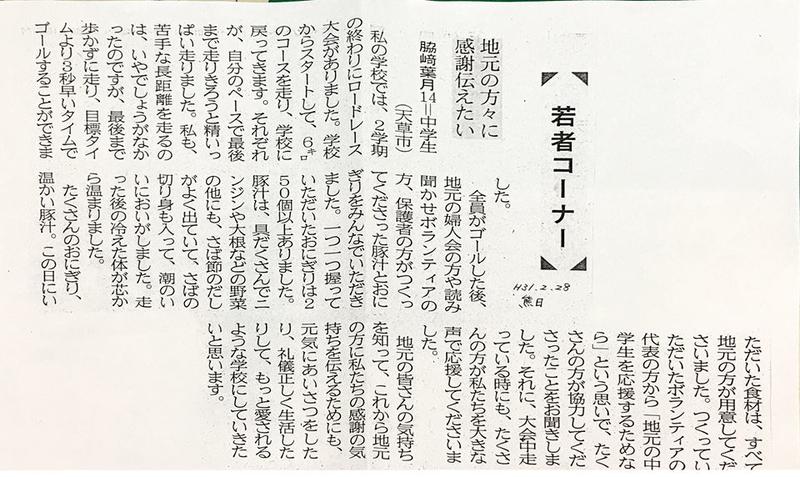 若者コーナー
H31.2.28
熊日
地元の方々に
感謝伝えたい
脇﨑葉月14=中学生
(天草市)
「私の学校では、2学期
の終わりにロードレース
大会がありました。学校
からスタートして、6㌔
のコースを走り、学校に
戻ってきます。それぞれ
が、自分のペースで最後
まで走りきろうと精いっ
ぱい走りました。私も、
苦手な長距離を走るの
は、いやでしょうがなか
ったのですが、最後まで
歩かずに走り、目標タイ
ムより3秒早いタイムで
ゴールすることができま
した。
全員がゴールした後、
地元の婦人会の方や読み
聞かせボランティアの
方、保護者の方がつくっ
てくださった豚汁とおに
ぎりをみんなでいただき
ました。一つ一つ握って
いただいたおにぎりは2
50個以上ありました。
豚汁は、具だくさんでニ
ンジンや大根などの野菜
の他にも、さば節のだし
がよく出ていて、さばの
切り身も入って、潮のい
いにおいがしました。走
った後の冷えた体が芯か
ら温まりました。
たくさんのおにぎり、
温かい豚汁。この日にい
ただいた食材は、すべて
地元の方が用意してくだ
さいました。つくってい
ただいたボランティアの
代表の方から「地元の中
学生を応援するためな
ら」という思いで、たく
さんの方が協力してくだ
さったことをお聞きしま
した。それに、大会中走
っている時にも、たくさ
んの方が私たちを大きな
声で応援してくださいま
した。
地元の皆さんの気持ち
を知って、これから地元
の方に私たちの感謝の気
持ちを伝えるためにも、
元気にあいさつをした
り、礼儀正しく生活した
りして、もっと愛される
ような学校にしていきた
いと思います。